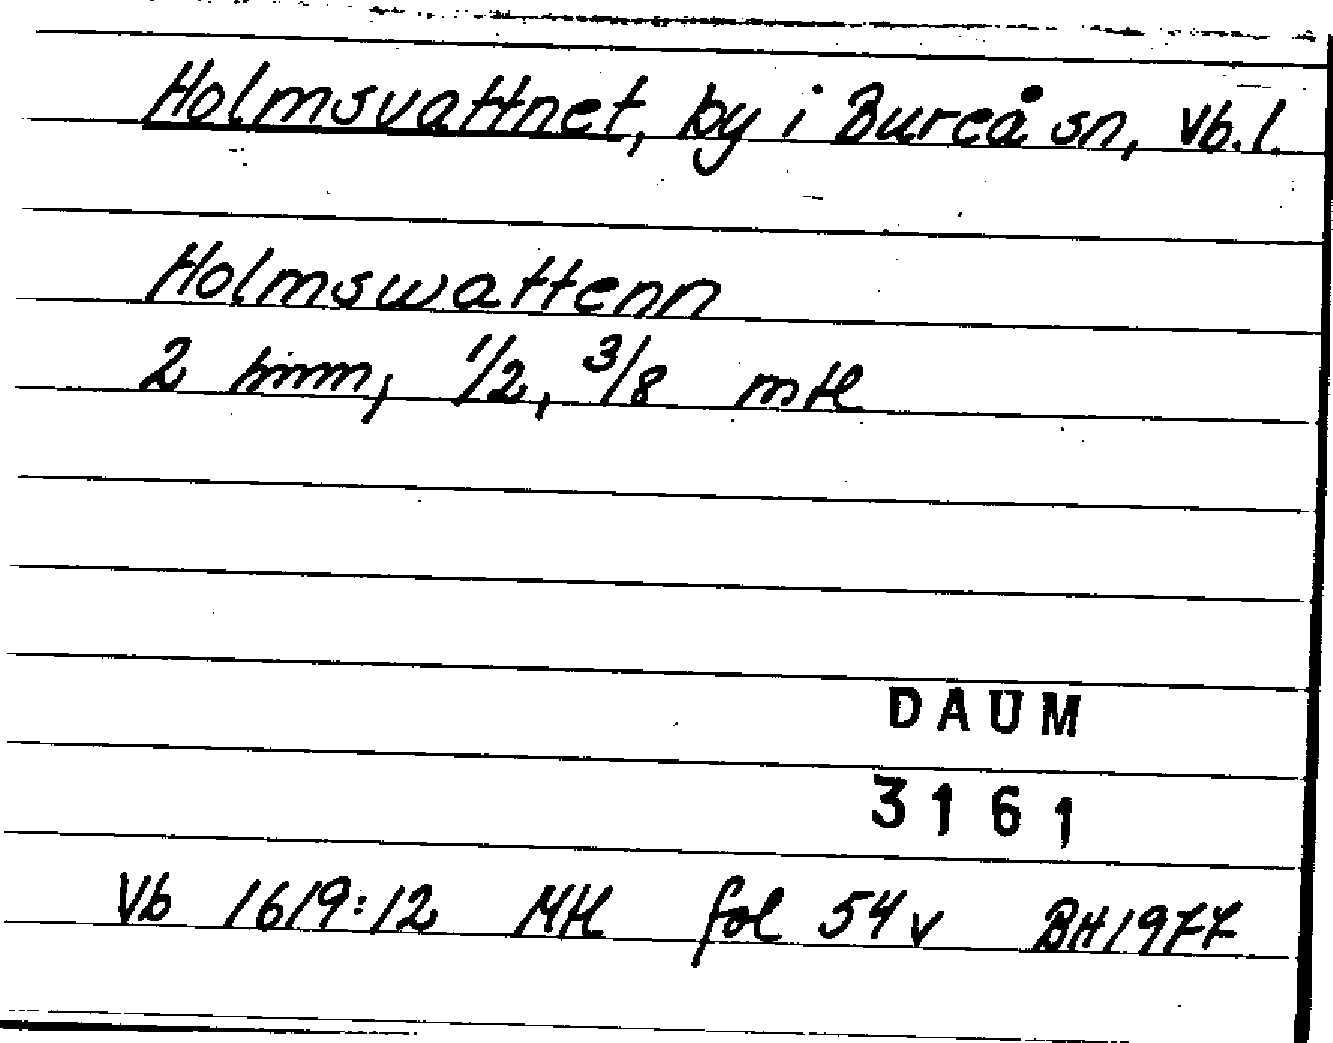 Holmsvattnet, by i Bureå sn, Vb.l.
Holmswattenn
2 hmm, 1/2, 3/8 mtl
DAUM
3161
Vb 1619:12 ML fol 54v BH1977